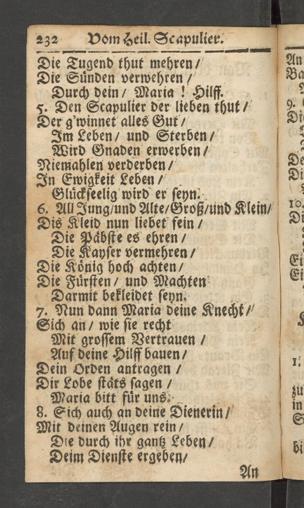 232 Vom Heil. Scapulier.
Die Tugend thut mehren/
Die Sünden verwehren/
Durch dein/ Maria! Hilff.
5. Den Scapulier der lieben thut/
Der g'winnet alles Gut/
Im Leben/ und Sterben/
Wird Gnaden erwerben/
Niemahlen verderben/
In Ewigkeit Leben/
Glückseelig wird er seyn.
6. All Jung/und Alte/Groß/und Klein/
Dis Kleid nun liebet fein/
Die Päbste es ehren/
Die Kayser vermehren/
Die König hoch achten/
Die Fürsten/ und Machten
Darmit bekleidet seyn.
7. Nun dann Maria deine Knecht/
Sich an/ wie sie recht
Mit grossem Vertrauen/
Auf deine Hilff bauen/
Dein Orden antragen/
Dir Lobe stäts sagen/
Maria bitt für uns.
8. Sich auch an deine Dienerin/
Mit deinen Augen rein/
Die durch ihr gantz Leben/
Deim Dienste ergeben/
An